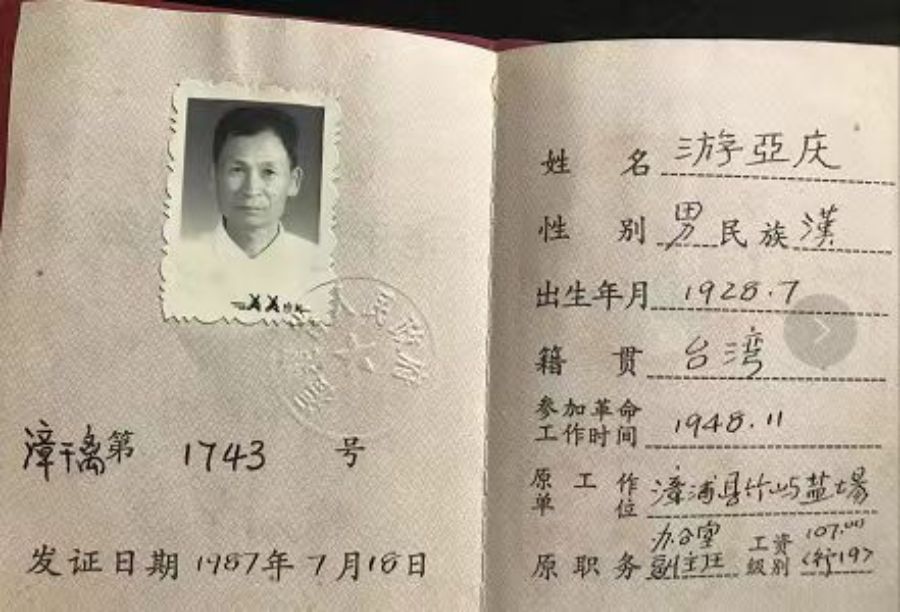 人民政府
漳干离第 1743 号
发证日期 1987年 7月18日
姓 名 游亞庆
性 别 男 民族 漢
出生年月 1928.7
籍 贯 台湾
参加革命
工作时间 1948.11
原工作
单 位 漳浦县竹屿盐場
原职务 办公室
副主任
工资
级别 107.00
(行19)